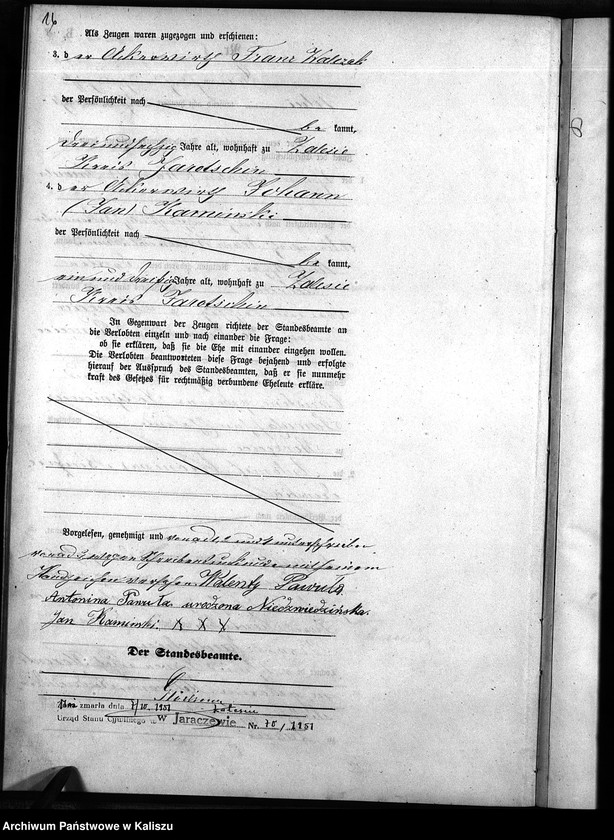 16
Als Zeugen waren zugezogen und erschienen:
3. der Ackerwirth Franz Walczak
der Persönlichkeit nach
be kannt,
dreiundsechzig Jahre alt, wohnhaft zu Zalesie
Kreis Jarotschin
4. der Ackerwirth Johann
(Jan) Kaminski
der Persönlichkeit nach
be kannt,
ein und dreißig Jahre alt, wohnhaft zu Zalesie
Kreis Jarotschin
In Gegenwart der Zeugen richtete der Standesbeamte an
die Verlobten einzeln und nach einander die Frage:
ob sie erklären, daß sie die Ehe mit einander eingehen wollen.
Die Verlobten beantworteten diese Frage bejahend und erfolgte
hierauf der Ausspruch des Standesbeamten, daß er sie nunmehr
kraft des Gesetzes für rechtmäßig verbundene Eheleute erkläre.
Vorgelesen, genehmigt und von 1, 2 und 4 unterschrieben
von 3 wegen Schreibensunkunde mit seinem
Handzeichen versehen Walenty Pawuła
Antonina Pawuła urodzona Niedzwiedzińska
Jan Kaminski X X X
Der Standesbeamte.
zmarła dnia 7/10. 1951 Zalesiu
Urząd Stanu Cywilnego w W Jaraczewie Nr. 70/1951
Archiwum Państwowe w Kaliszu